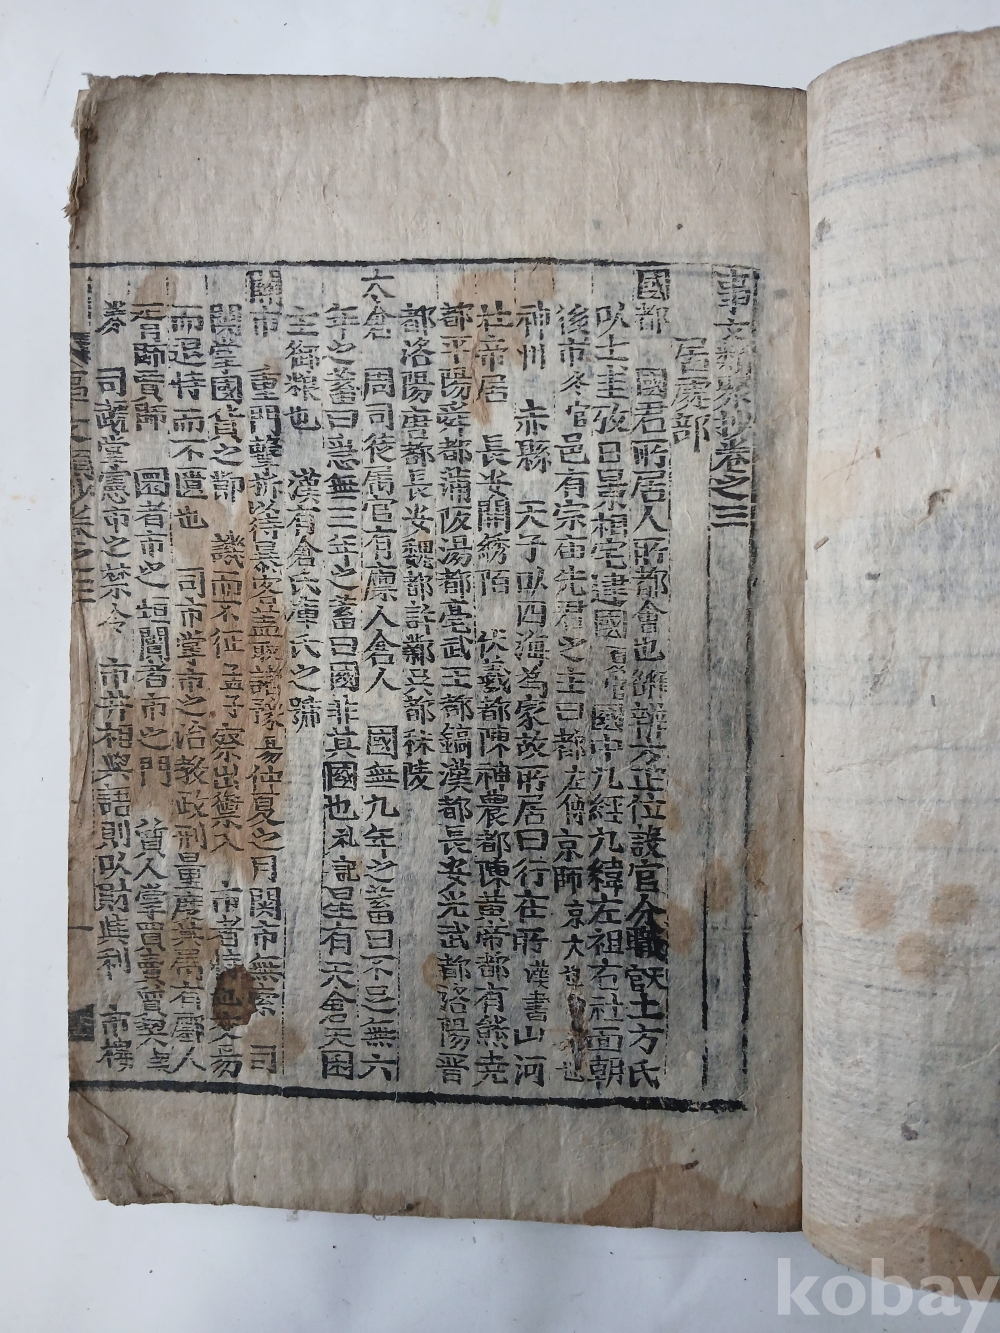 事文類聚抄卷之三
居處部
國都 國君所居人所都會也 辨方正位設官分職 土方氏
以土圭致日景相宅建國 國中九經九緯左祖右社面朝
後市冬官邑有宗庙先君之主曰都左傳京師京大也
神州 赤縣 天子以四海爲家故所居曰行在所漢書山河
壮帝居 長安開綉陌 伏羲都陳神農都陳黃帝都有熊尭
都平陽舜都蒲阪湯都亳武王都鎬漢都長安光武都洛陽晋
都洛陽唐都長安魏都許鄴吳都秣陵
大倉 周司徒属官有廪人倉人 國無九年之蓄曰不足無六
年之蓄曰急無三年之蓄曰國非其國也礼記星有天倉天囷
主御粮也 漢有倉氏庫氏之號
關市 重門擊柝以待暴客盖取諸豫易仲夏之月関市無索 司
関掌國貨之節 譏而不征孟子察出禦入 市者恃也
而退恃而不匱也 司市掌市之治教政刑量度 人
胥師賈師 圜者市之垣闠者市之門 質人掌
司 掌憲市之禁令 市井相與語則以財與利 市樓
kobay